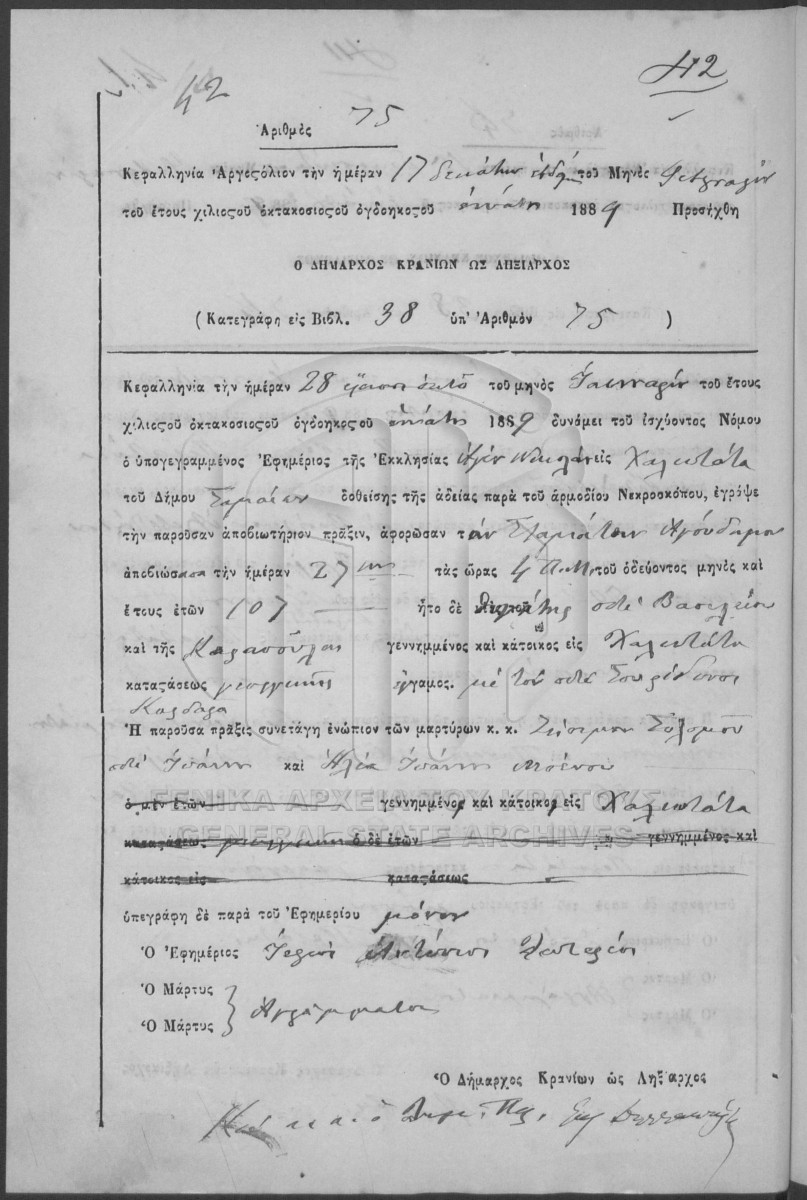 42
42
Ἀριθμὸς 75
Κεφαλληνία Ἀργοςόλιον τὴν ἡμέραν 17 δεκάτην ἑβδόμ τοῦ Μηνὸς Φεβρουαρίου
τοῦ ἔτους χιλιοςοῦ ὀκτακοσιοςοῦ ὀγδοηκοςοῦ ἐννάτου 1889 Προσήχθη
Ο ΔΗΜΑΡΧΟΣ ΚΡΑΝΙΩΝ ΩΣ ΛΗΞΙΑΡΧΟΣ
( Κατεγράφη εἰς Βιβλ. 38 ὑπ' Ἀριθμὸν 75 )
Κεφαλληνία τὴν ἡμέραν 28 εἴκοσι ὀκτὼ τοῦ μηνὸς Ἰαννουαρίου τοῦ ἔτους
χιλιοςοῦ ὀκτακοσιοςοῦ ὀγδοηκοςοῦ ἐννάτου 1889 δυνάμει τοῦ ἰσχύοντος Νόμου
ὁ ὑπογεγραμμένος Ἐφημέριος τῆς Ἐκκλησίας Ἁγίου Νικολάου εἰς Χαλιωτάτα
τοῦ Δήμου Σαμαίων δοθείσης τῆς ἀδείας παρὰ τοῦ ἁρμοδίου Νεκροσκόπου, ἐγράψε
τὴν παροῦσαν ἀποβιωτήριον πρᾶξιν, ἀφορῶσαν τὴν Σταμάταν
ἀποβιώσασα τὴν ἡμέραν 27 τὰς ὥρας 4 Π.Μ. τοῦ ὁδεύοντος μηνὸς καὶ
ἔτους ἐτῶν 107 ἦτο δὲ ποτὲ Βασιλείου
καὶ τῆς γεννημμένος καὶ κάτοικος εἰς Χαλιωτάτα
καταςάσεως γεωργικῆς ἔγαμος. μὲ τὸν ποτὲ Σπυρίδωνα
Καλδαρα
Ἡ παροῦσα πρᾶξις συνετάγη ἐνώπιον τῶν μαρτύρων κ. κ. Σολομοῦ
ποτὲ Ἰωάννη καὶ Ἠλία Ἰωάννη
ὁ μὲν ἐτῶν γεννημμένος καὶ κάτοικος εἰς Χαλιωτάτα
καταςάσεως γεωργικῆς ὁ δὲ ἐτῶν γεννημμένος καὶ
κάτοικος εἰς καταςάσεως
ὑπεγράφη δὲ παρὰ τοῦ Ἐφημερίου μόνον
Ὁ Ἐφημέριος Ἱερεὺς Ἀντώνιος
Ὁ Μάρτυς
Ὁ Μάρτυς } Ἀγράμματοι
Ὁ Δήμαρχος Κρανίων ὡς Ληξίαρχος
ΓΕΝΙΚΑ ΑΡΧΕΙΑ ΤΟΥ ΚΡΑΤΟΥΣ
GENERAL STATE ARCHIVES